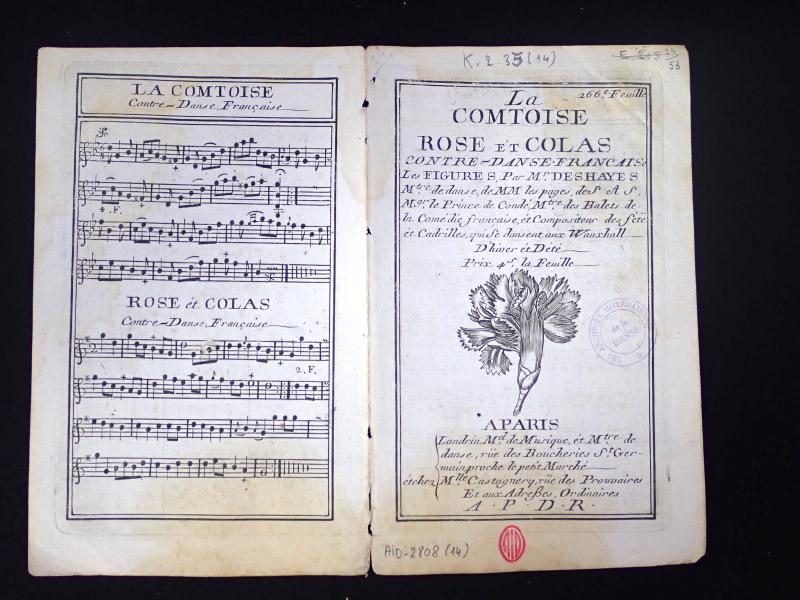 LA COMTOISE
Contre-Danse, Française
4. F.
ROSE ét COLAS
Contre-Danse, Française
2. F.
K. 2. 35 (14)
53
166.e Feuille
La
COMTOISE
ROSE ÉT COLAS
CONTRE-DANSE-FRANCAISE
Les FIGURES, Par Mr. DESHAYES
Mtre de danse, de MM les pages, de S A S.
Mgr. le Prince de Condé, Mtre des Balets de
la Comédie francaise, ét Compositeur des féte
ét Cadrilles, qui se dansent aux Wauxhall
D'hiver ét D'été
Prix 4s. la Feuille
ARCHIVES INTERNATIONALES
de la
DANSE
A PARIS
Landrin Md. de Musique, ét Mtre de
danse, rüe des Boucheries St Ger-
main proche le petit Marché
ét chez Mlle Castagnery, rüe des Prouvaires
Et aux Adreßes, Ordinaires
A . P . D . R .
AID-2808 (14)